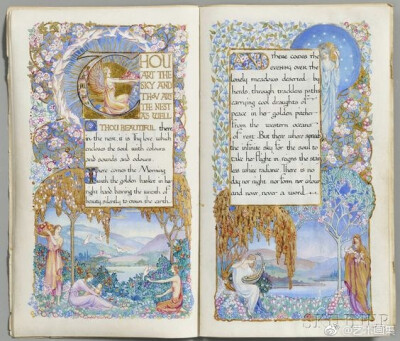 THOU
ART THE
SKY AND
THOU ART
THE NEST
AS WELL
O THOU BEAUTIFUL, there
in the nest, it is thy love which
encloses the soul with colours
and sounds and odours.
There comes the Morning
with the golden basket in her
right hand bearing the wreath of
beauty, silently to crown the earth.
And there comes the
evening over the
lonely meadows deserted by
herds, through trackless paths
carrying cool draughts of
peace in her golden pitcher
from the western ocean
of rest. But there where spreads
the infinite sky for the soul to
take her flight in, reigns the stain
less white radiance. There is no
day nor night, nor form nor colour
and never, never a word.
SKINNER